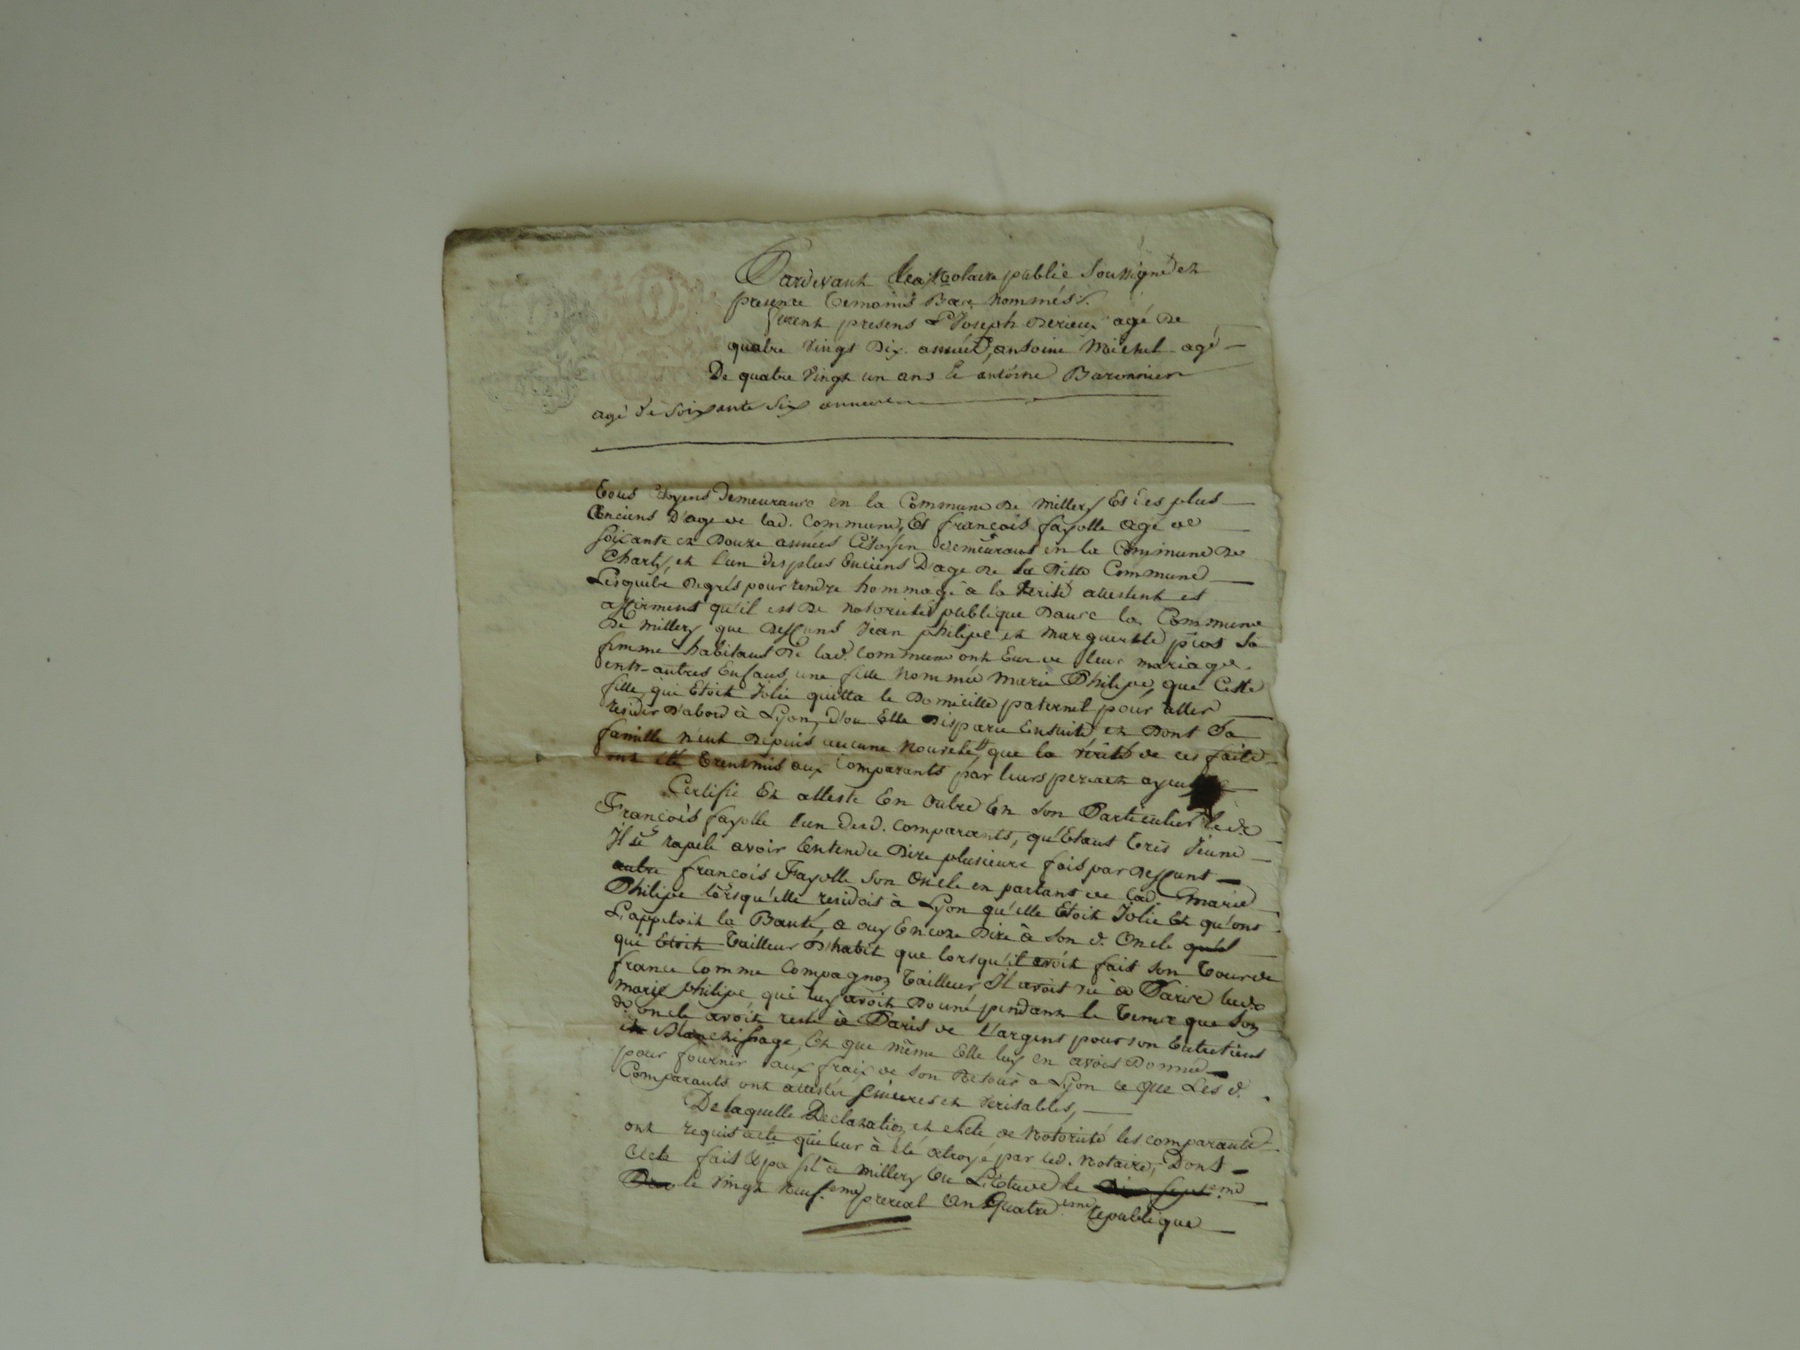 Pardevant Notaire public Soussigné et
presence temoins Bas nommés.
furent presens Sr Joseph Derieux agé de
quatre vings Dix années, antoine Michel agé
De quatre vingt un ans & antoine Baronnier
agé de soixante six annees
tous citoyens Demeurans en la Commune De Millery Et des plus
anciens D'age de lad. Commune, Et françois fayolle agé de
soixante et Douze années Citoyen demeurant en la Commune De
Charly, et l'un des plus Enciens D'age de la Ditte Commune
Lesquels De grés pour rendre hommage à la Verité attestent et
affirment qu'il est De notorieté publique Dans la Commune
De Millery que Deffunts Jean philipe et marguerite pios Sa
femme habitans De lad. Commune ont Eue de leur mariage
entr-autres Enfans une fille Nommée Marie Philipe, que Cette
fille qui Etoit Jolie quitta le Domicille paternel pour aller
resider D'abord à Lyon, d'ou Elle Disparu Ensuite, et Dont Sa
famille n'eut Depuis aucune Nouvelle, que la vérité de ces faits
ont été trensmis aux Comparants par leurs peres et ayeux
Certifie Et atteste En Outre En Son Particulier led.
François fayolle l'un desd. comparants, qu'Etant très Jeune
Il se rapele avoir Entendu Dire plusieurs fois par Deffunt
autre françois Fayolle Son Oncle en parlant de lad. Marie
Philipe lorsqu'elle residoit à Lyon qu'elle Etoit Jolie Et qu'on
L'appeloit la Bauté, a ouy Encore Dire à Son d. Oncle qu'il
qui Etoit Tailleur D'habit que lorsqu'il avoit fait Son Tour de
france Comme Compagnon Tailleur Il avoit vu à Paris lad.
Marie Philipe qui luy avoit Donné pendant le tems que Son
d. oncle avoit resté à Paris de L'argent pour son Entretient
et Blanchissage, Et que même Elle luy en avoit Donné
pour fournir aux fraix de Son Retour a Lyon ce que Les d.
Comparants ont attesté Sincères et Veritables,
De laquelle Declaration et acte de Notorieté les comparants
ont requis acte qui leur à été octroyé par led. Notaire, Dont
Acte fait & passé à Millery En L'Etude le Dix Septeme
le vingt neufeme prerial An Quatrieme republique